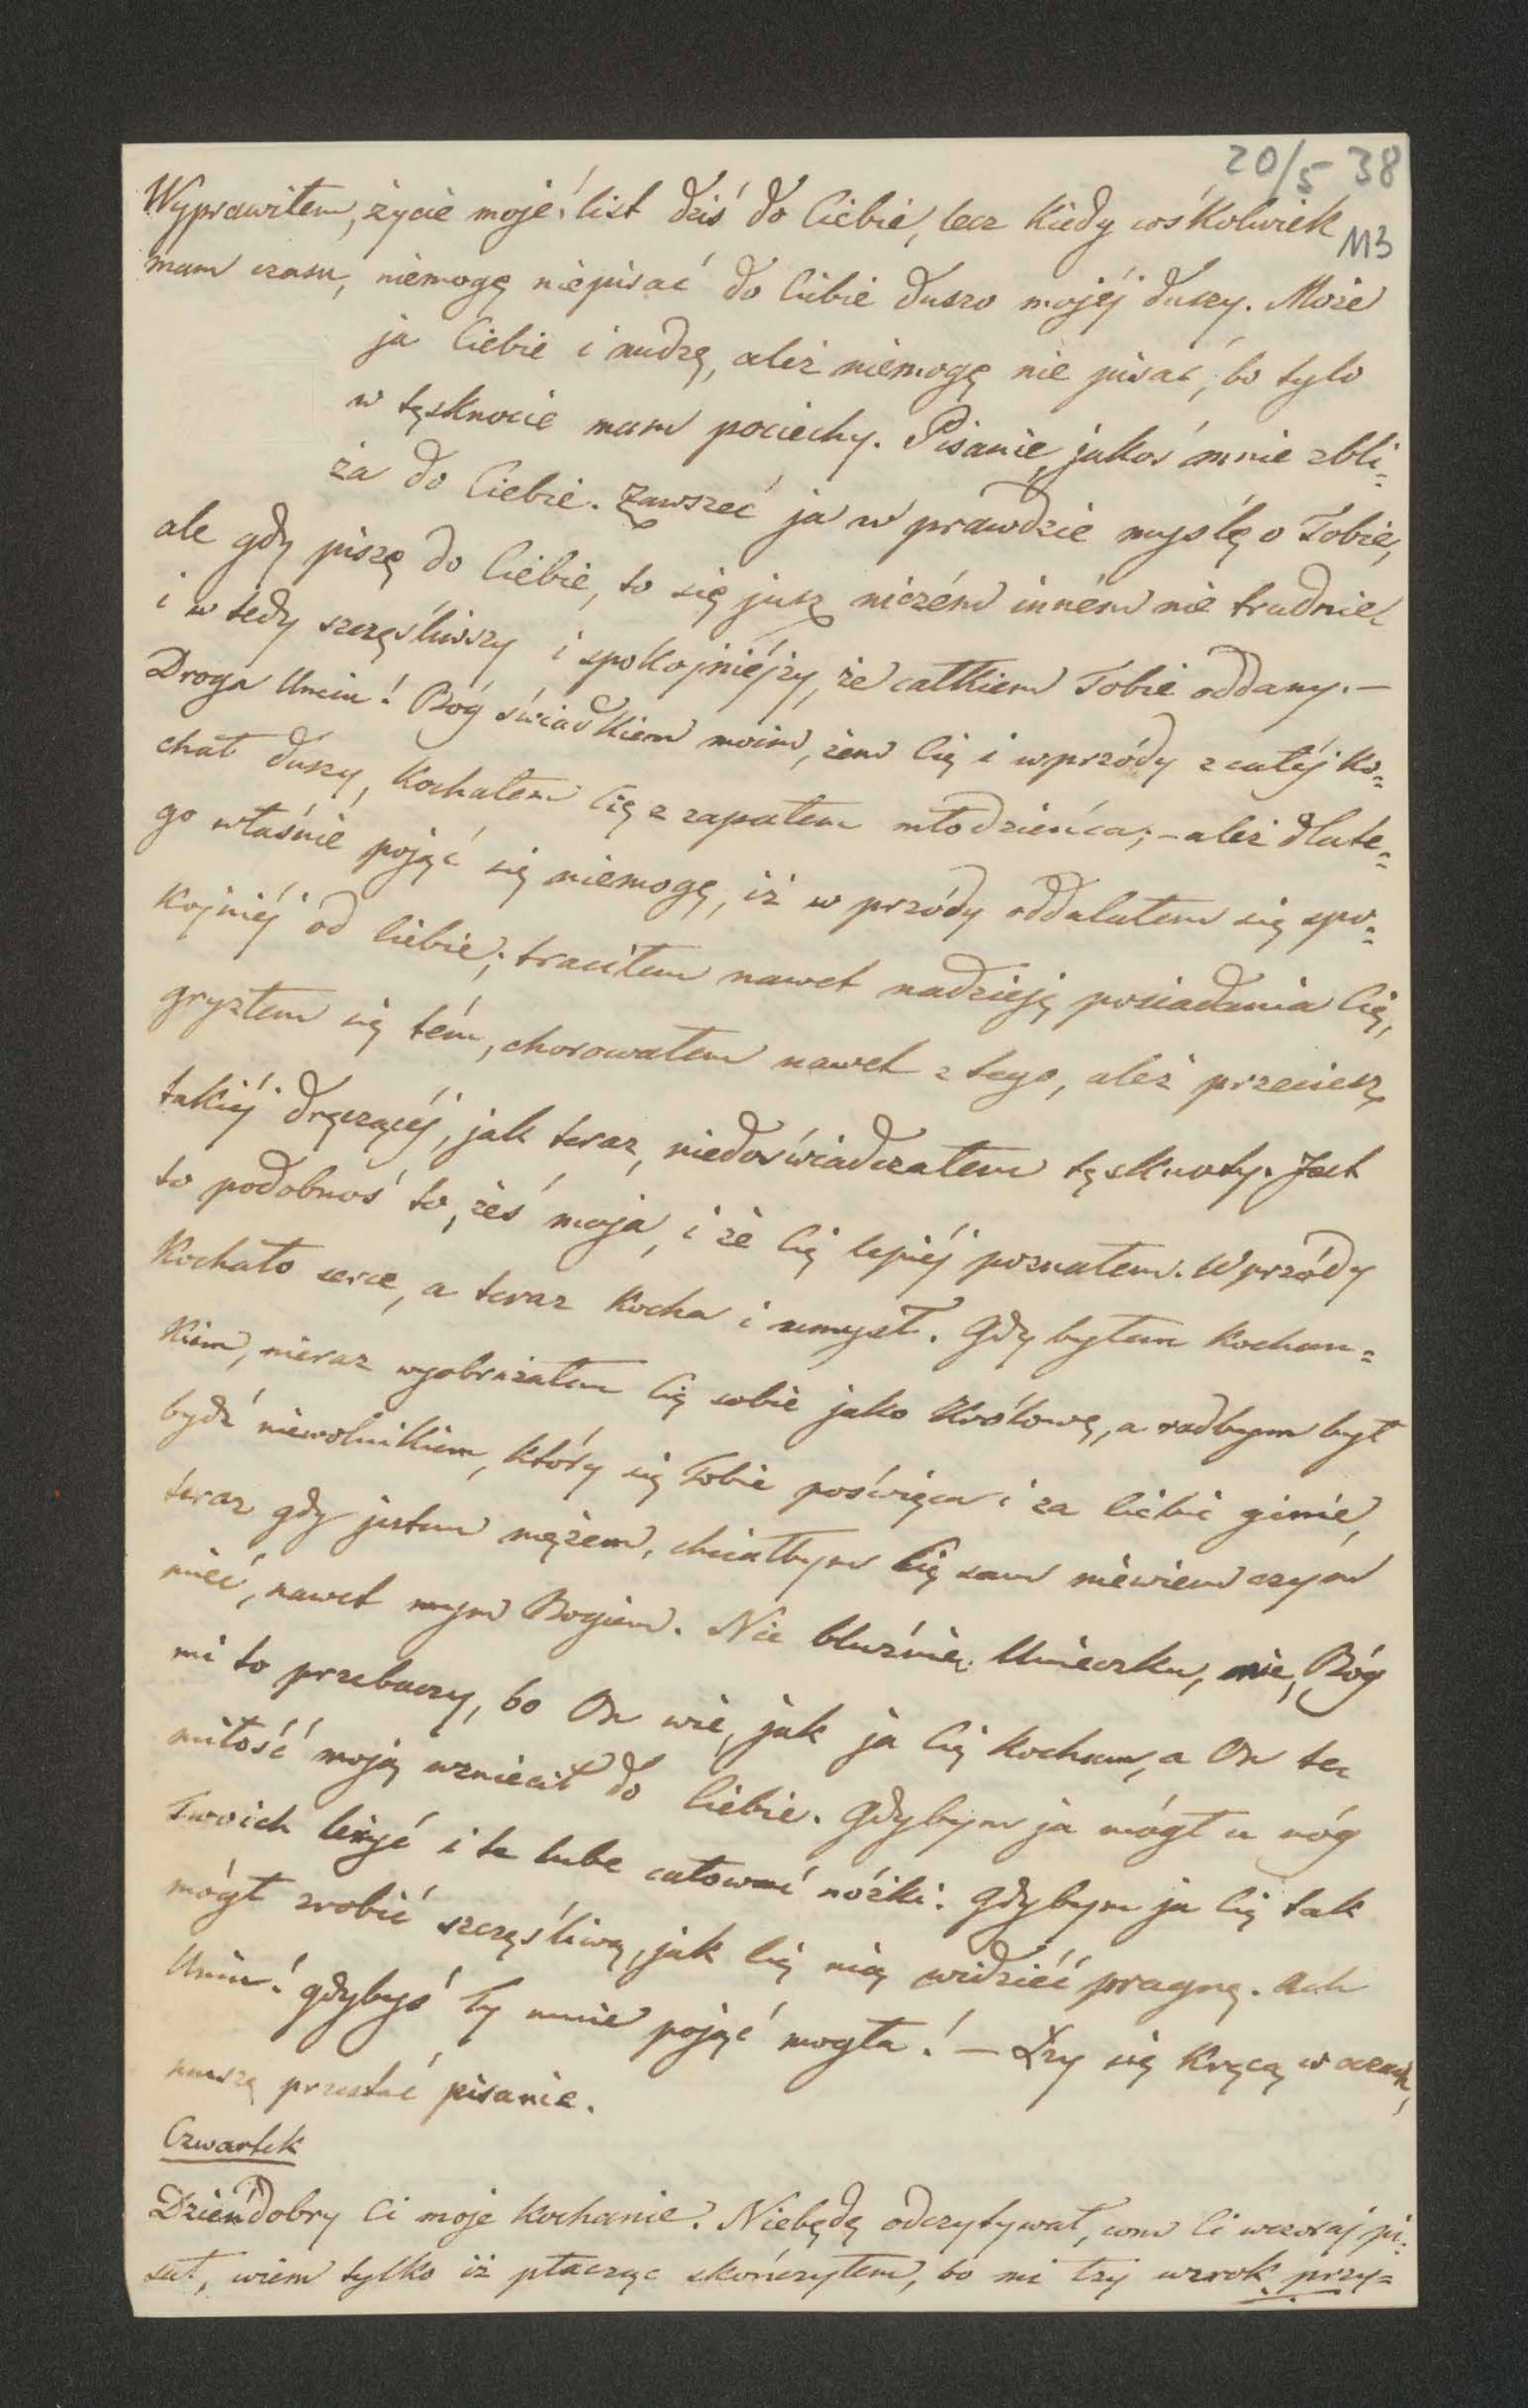 20/5 38
113
Wyprawiłem, życie moje, list dziś do Ciebie, lecz kiedy cośkolwiek
mam czasu, niemogę niepisać do Ciebie duszo mojéj duszy. Może
ja Ciebie i nudzę, aleź niemogę nie pisać, bo tylo
w tęsknocie mam pociechy. Pisanie jakoś mnie zbli=
ża do Ciebie. Zawszeć ja w prawdzie myślę o Tobie,
ale gdy piszę do Ciebie, to się jusz niczém inném nie trudnie
i w tedy szczęśliwszy i spokojniéjzy, że całkiem Tobie oddany. —
Droga Unciu! Bóg świadkiem moim, żem Cię i wprzódy z całéj ko=
chał duszy, kochałem Cię z zapałem młodzieńca; – aleź dlate=
go właśnie pojąć się niemogę, iż w przódy oddalałem się spo=
kojniéj od Ciebie; traciłem nawet nadzieję posiadania Cię,
gryzłem się tém, chorowałem nawet z tego, aleź przeciesz
takiéj dręczącéj, jak teraz, niedoświadczałem tęsknoty. Jest
to podobnoś to, żeś moja, i że Cię lepiéj poznałem. Wprzódy
kochało serce, a teraz kocha i umysł. Gdy byłem kochan=
kiem, nieraz wyobrażałem Cię sobie jako Królowę, a radbym był
bydź niewolnikiem, który się Tobie poświęca i za Ciebie ginie,
teraz gdy jestem mężem, chciałbym Cię sam niewiem czym
mieć, nawet mym Bogiem. Nie bluźnię Unieczku, nie, Bóg
mi to przebaczy, bo On wie, jak ja Cię kocham, a On tę
miłość moją wzniecił do Ciebie. Gdybym ja mógł u nóg
Twoich leżyć i te lube całować nóżki. Gdybym ja Cię tak
mógł zrobić szczęśliwą, jak Cię nią widzieć pragnę. Ach
Uniu! gdybyś Ty mnie pojąć mogła! — Łzy się kręcą w oczach,
muszę przestać pisanie.
Czwartek
Dzieńdobry Ci moje kochanie. Niebędę odczytywał, com Ci wczoraj pi=
sał, wiem tylko iż płacząc skończyłem, bo mi łzy wzrok przy=